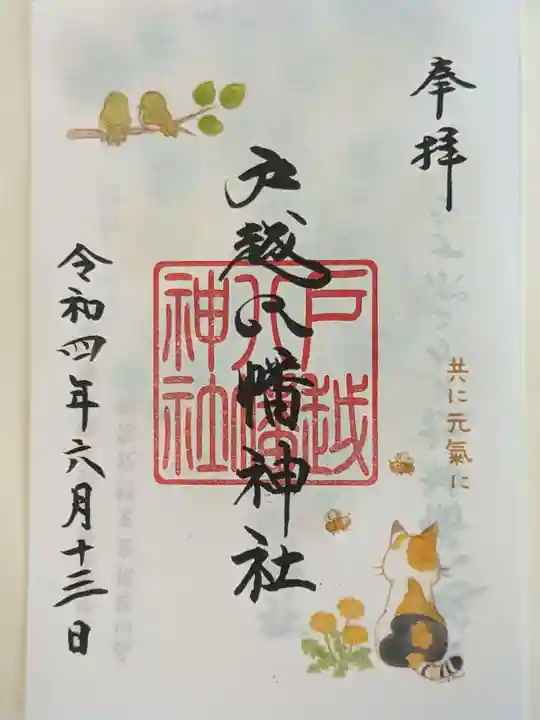 奉拝
共に元氣に
戸越八幡神社
戸越
八幡
神社
令和四年六月十三日